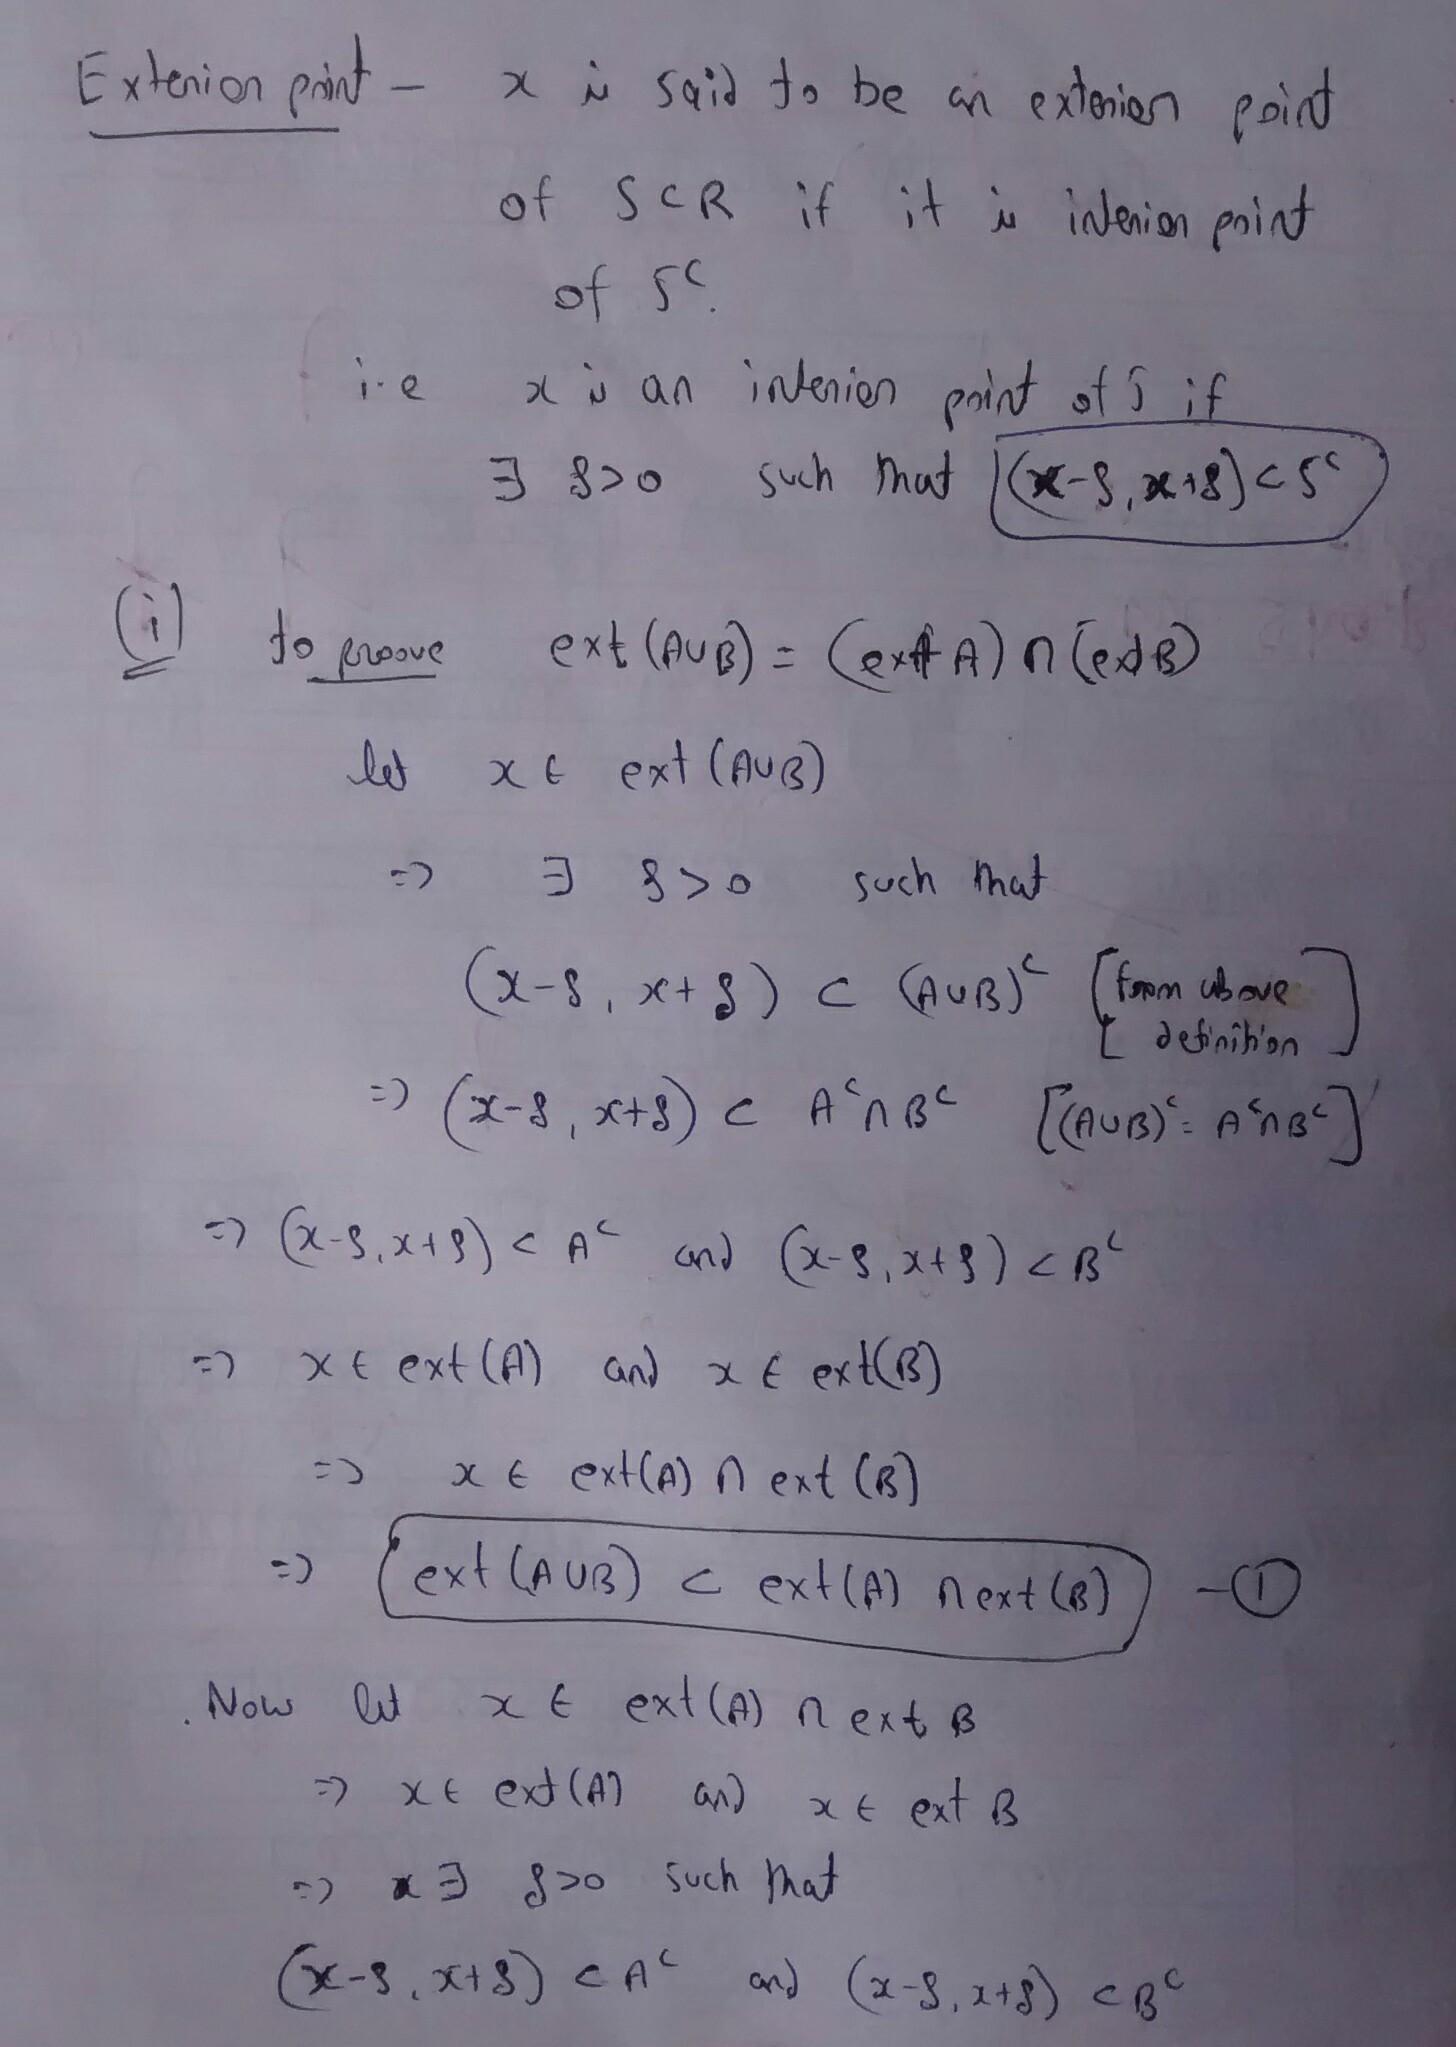 Exterior point - x is said to be an exterior point
of S ⊂ R if it is interior point
of S^c.
i.e x is an interior point of S if
∃ δ>0 such that (x-δ, x+δ) ⊂ S^c
(i) to proove ext (A∪B) = (ext A) ∩ (ext B)
let x ∈ ext (A∪B)
=> ∃ δ > 0 such that
(x-δ, x+δ) ⊂ (A∪B)^c [from above
definition]
=> (x-δ, x+δ) ⊂ A^c ∩ B^c [(A∪B)^c = A^c ∩ B^c]
=> (x-δ, x+δ) ⊂ A^c and (x-δ, x+δ) ⊂ B^c
=> x ∈ ext (A) and x ∈ ext(B)
=> x ∈ ext(A) ∩ ext (B)
=> ext (A∪B) ⊂ ext(A) ∩ ext (B) - ①
. Now let x ∈ ext (A) ∩ ext B
=> x ∈ ext (A) and x ∈ ext B
=> x ∃ δ>0 such that
(x-δ, x+δ) ⊂ A^c and (x-δ, x+δ) ⊂ B^c